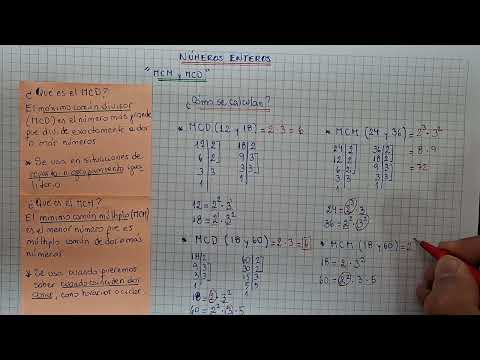 NÚMEROS ENTEROS
"MCM y MCD"
¿Qué es el MCD?
El máximo común divisor
(MCD) es el número más grande
que divide exactamente a dos
o más números
* Se usa en situaciones de
reparto o agrupamiento
¿Qué es el MCM?
El mínimo común múltiplo (MCM)
es el menor número que es
múltiplo común de dos o más
números
* Se usa cuando queremos
saber cuando coinciden dos
cosas, como horarios o ciclos
¿Cómo se calculan?
* MCD (12 y 18) = 2·3 = 6
12 | 2 18 | 2
6 | 2 9 | 3
3 | 3 3 | 3
1 1
12 = 2²·3
18 = 2·3²
* MCM (24 y 36) = 2³·3²
24 | 2 36 | 2 = 8·9
12 | 2 18 | 2 = 72
6 | 2 9 | 3
3 | 3 3 | 3
1 1
24 = 2³·3
36 = 2²·3²
* MCD (18 y 60) = 2·3 = 6
18 | 2 60 | 2
9 | 3 30 | 2
3 | 3 15 | 3
1 5 | 5
1
60 = 2²·3·5
* MCM (18 y 60) = 2²
18 = 2·3²
60 = 2²·3·5